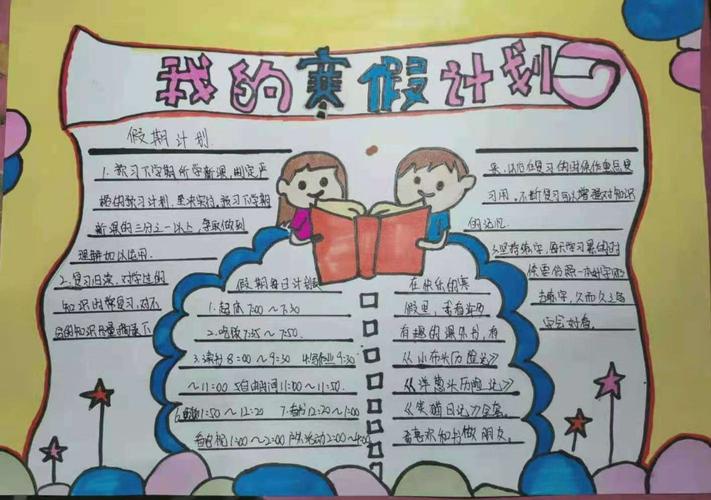 我的寒假计划
假期计划
1.预习下学期所学新课,制定严
格的预习计划,坚决实行,预习下学期
新课的三分之一以上,争取做到
理解加以运用.
2.复习旧课,对学过的
知识时常复习,对不
会的知识尽量摘抄下
来,以后在复习的时候作重点复
习用.不断复习可以增强对知识
的记忆.
3.坚持练字,每天学习累的时
候要仿照一本好字帖
去练字,久而久之
定会好看.
假期每日计划表
1.起床7:00~7:30
2.吃饭7:35~7:50.
3.读书8:00~9:30 4.写作业9:30
~11:00 5自由时间11:00~11:50.
11:50~12:20 7.12:20~1:00
看电视1:00~2:00 户外活动2:00~4:00
在快乐的寒
假里,我看许多
有趣的课外书,有
《小布头历险记》
《洋葱头历险记》
《笑猫日记》全套.
喜欢和书做朋友.